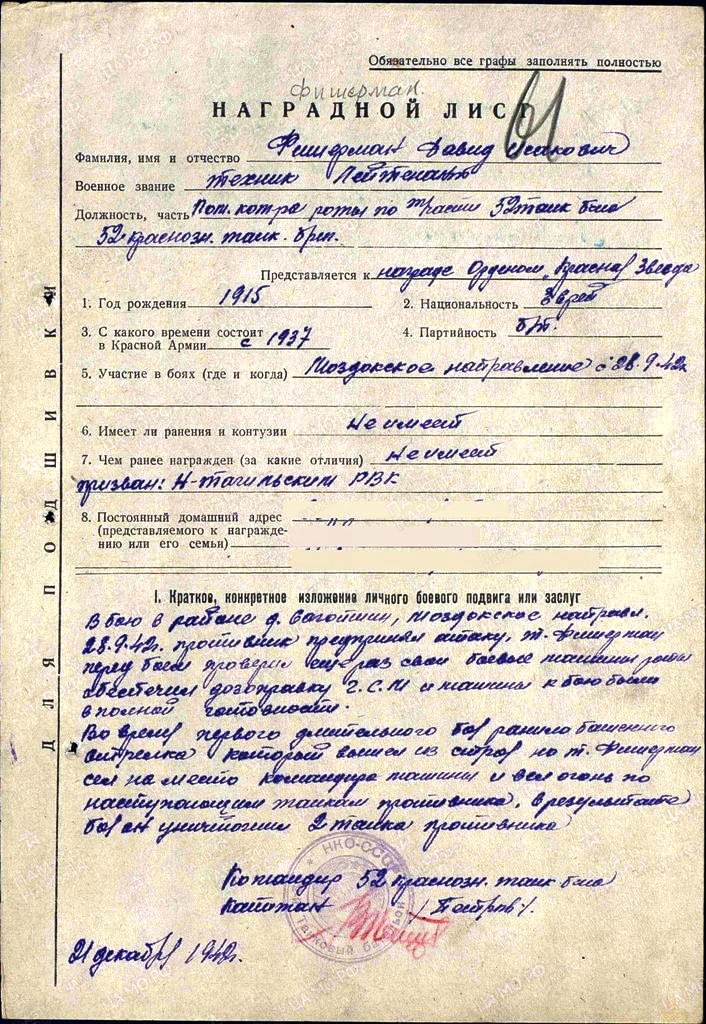 Обязательно все графы заполнять полностью
Фишерман.
НАГРАДНОЙ ЛИСТ
61
Фамилия, имя и отчество Фишерман Давид Исакович
Военное звание техник Лейтенант
Должность, часть Пом. ком-ра роты по 52 танк. б-на
52 краснозн. танк. бриг.
Представляется к награде Орденом „Красная Звезда
1. Год рождения 1915
2. Национальность Еврей
3. С какого времени состоит
в Красной Армии с 1937
4. Партийность б/п.
5. Участие в боях (где и когда) Моздокское направление с 28.9.42г.
6. Имеет ли ранения и контузии Не имеет
7. Чем ранее награжден (за какие отличия) Не имеет
призван: Н-Тагильским РВК
8. Постоянный домашний адрес
(представляемого к награжде-
нию или его семьи)
ДЛЯ ПОДШИВКИ
I. Краткое, конкретное изложение личного боевого подвига или заслуг
В бою в районе д. Моздокское направл.
28.9.42г. противник предпринял атаку, т. Фишерман
перед боем проверил еще раз свои боевые машины роты
обеспечил дозоправку Г.С.М и машины к бою были
в полной готовности.
Во время первого длительного боя ранило башенного
стрелка который вышел из строя но т. Фишерман
сел на место командира машины и вел огонь по
наступающим танкам противника, в результате
боя он уничтожил 2 танка противника
Командир 52 краснозн. танк б-на
Капитан /Петров/.
НКО-СССР
21 декабря 1942г.